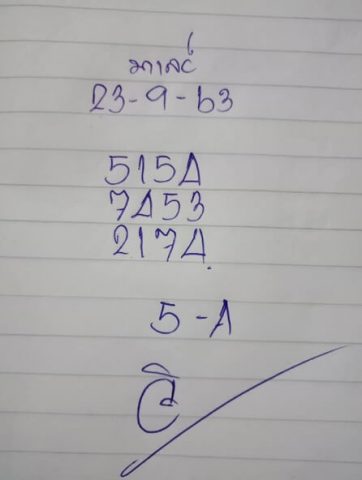 มาเลย์
23-9-63
5154
7453
2174
5-4